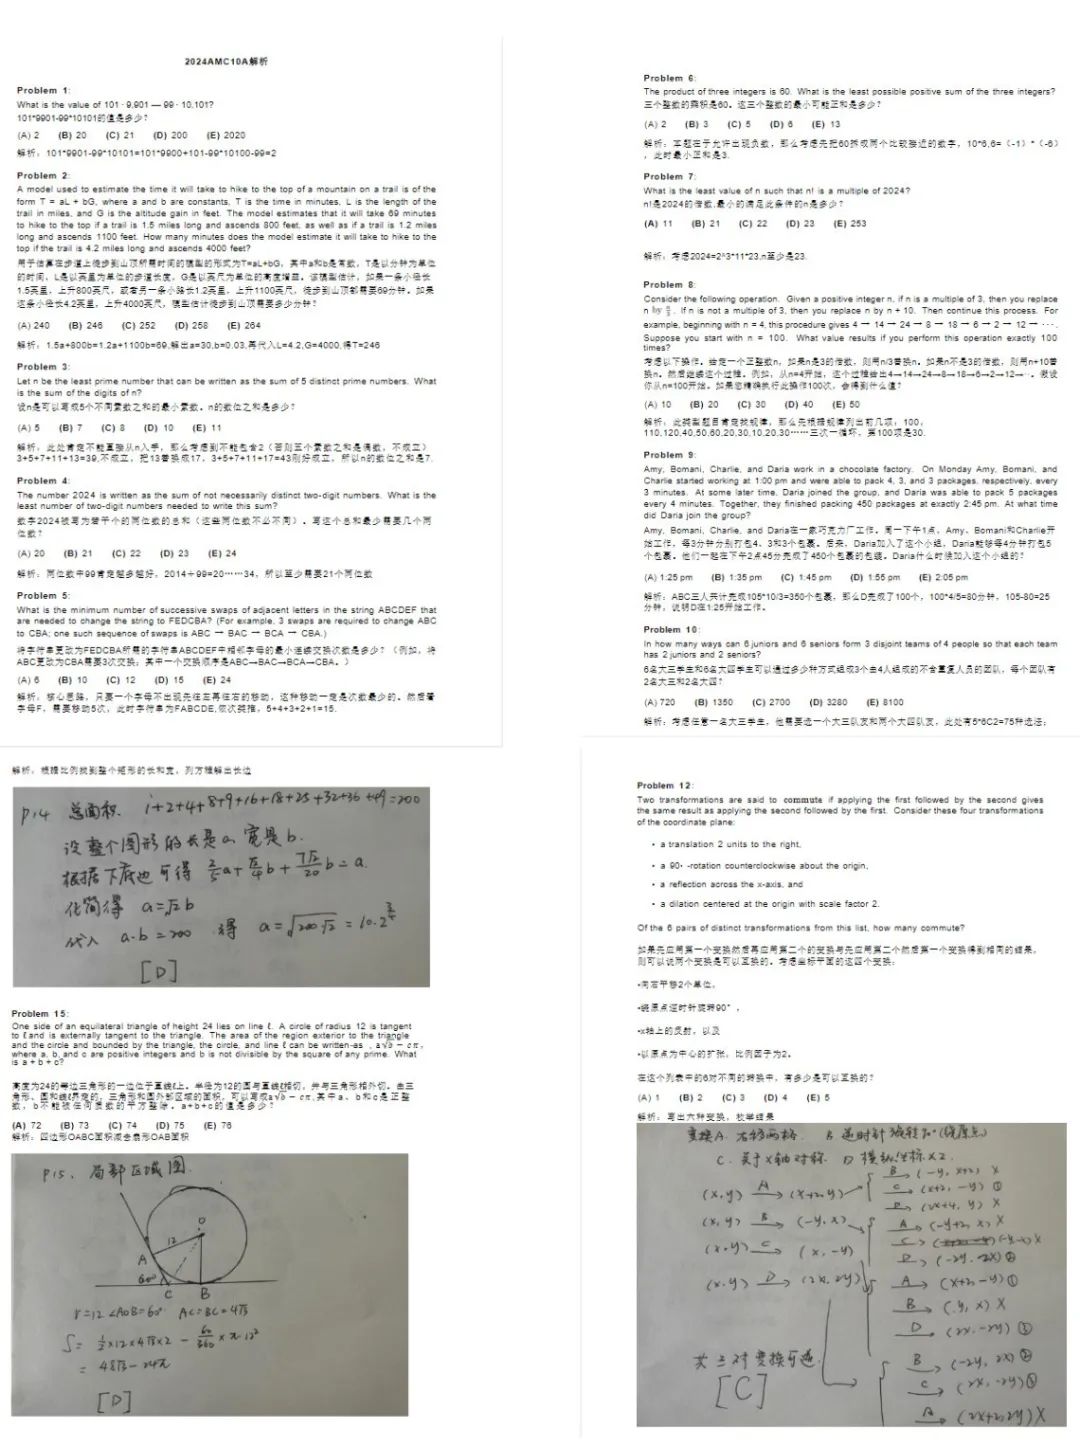 2024AMC10A解析
Problem 1:
What is the value of 101 · 9,901 — 99 · 10,101?
101*9901-99*10101的值是多少？
(A) 2 (B) 20 (C) 21 (D) 200 (E) 2020
解析：101*9901-99*10101=101*9900+101-99*10100-99=2
Problem 2:
A model used to estimate the time it will take to hike to the top of a mountain on a trail is of the
form T = aL + bG, where a and b are constants, T is the time in minutes, L is the length of the
trail in miles, and G is the altitude gain in feet. The model estimates that it will take 69 minutes
to hike to the top if a trail is 1.5 miles long and ascends 800 feet, as well as if a trail is 1.2 miles
long and ascends 1100 feet. How many minutes does the model estimate it will take to hike to the
top if the trail is 4.2 miles long and ascends 4000 feet?
用于估算在步道上徒步到山顶所需时间的模型的形式为T=aL+bG，其中a和b是常数，T是以分钟为单位
的时间，L是以英里为单位的步道长度，G是以英尺为单位的高度增益。该模型估计，如果一条小径长
1.5英里，上升800英尺，或者另一条小路长1.2英里，上升1100英尺，徒步到山顶都需要69分钟。如果
这条小径长4.2英里，上升4000英尺，模型估计徒步到山顶需要多少分钟？
(A) 240 (B) 246 (C) 252 (D) 258 (E) 264
解析：1.5a+800b=1.2a+1100b=69,解出a=30,b=0.03,再代入L=4.2,G=4000,得T=246
Problem 3:
Let n be the least prime number that can be written as the sum of 5 distinct prime numbers. What
is the sum of the digits of n?
设n是可以写成5个不同素数之和的最小素数。n的数位之和是多少？
(A) 5 (B) 7 (C) 8 (D) 10 (E) 11
解析：此处肯定不能直接从n入手，那么考虑到不能包含2（否则五个素数之和是偶数，不成立）
3+5+7+11+13=39,不成立，把13替换成17，3+5+7+11+17=43刚好成立，所以n的数位之和是7.
Problem 4:
The number 2024 is written as the sum of not necessarily distinct two-digit numbers. What is the
least number of two-digit numbers needed to write this sum?
数字2024被写为若干个的两位数的总和（这些两位数不必不同）。写这个总和最少需要几个两
位数？
(A) 20 (B) 21 (C) 22 (D) 23 (E) 24
解析：两位数中99肯定越多越好，2014÷99=20……34，所以至少需要21个两位数
Problem 5:
What is the minimum number of successive swaps of adjacent letters in the string ABCDEF that
are needed to change the string to FEDCBA? (For example, 3 swaps are required to change ABC
to CBA; one such sequence of swaps is ABC → BAC → BCA → CBA.)
将字符串更改为FEDCBA所需的字符串ABCDEF中相邻字母的最小连续交换次数是多少？（例如，将
ABC更改为CBA需要3次交换；其中一个交换顺序是ABC→BAC→BCA→CBA。）
(A) 6 (B) 10 (C) 12 (D) 15 (E) 24
解析：核心思路，只要一个字母不出现先往左再往右的移动，这种移动一定是次数最少的。然后看
字母F，需要移动5次，此时字符串为FABCDE,依次类推，5+4+3+2+1=15.
Problem 6:
The product of three integers is 60. What is the least possible positive sum of the three integers?
三个整数的乘积是60。这三个整数的最小可能正和是多少？
(A) 2 (B) 3 (C) 5 (D) 6 (E) 13
解析：本题在于允许出现负数，那么考虑先把60拆成两个比较接近的数字，10*6,6=（-1）*（-6）
，此时最小正和是3.
Problem 7:
What is the least value of n such that n! is a multiple of 2024?
n!是2024的倍数,最小的满足此条件的n是多少？
(A) 11 (B) 21 (C) 22 (D) 23 (E) 253
解析：考虑2024=2^3*11*23,n至少是23.
Problem 8:
Consider the following operation. Given a positive integer n, if n is a multiple of 3, then you replace
n by n/3. If n is not a multiple of 3, then you replace n by n + 10. Then continue this process. For
example, beginning with n = 4, this procedure gives 4 → 14 → 24 → 8 → 18 → 6 → 2 → 12 → ···.
Suppose you start with n = 100. What value results if you perform this operation exactly 100
times?
考虑以下操作。给定一个正整数n，如果n是3的倍数，则用n/3替换n。如果n不是3的倍数，则用n+10替
换n。然后继续这个过程。例如，从n=4开始，这个过程给出4→14→24→8→18→6→2→12→···。假设
你从n=100开始。如果您精确执行此操作100次，会得到什么值？
(A) 10 (B) 20 (C) 30 (D) 40 (E) 50
解析：此类型题目肯定找规律，那么先根据规律列出前几项：100,
110,120,40,50,60,20,30,10,20,30……三次一循环，第100项是30.
Problem 9:
Amy, Bomani, Charlie, and Daria work in a chocolate factory. On Monday Amy, Bomani, and
Charlie started working at 1:00 pm and were able to pack 4, 3, and 3 packages, respectively, every
3 minutes. At some later time, Daria joined the group, and Daria was able to pack 5 packages
every 4 minutes. Together, they finished packing 450 packages at exactly 2:45 pm. At what time
did Daria join the group?
Amy, Bomani, Charlie, and Daria在一家巧克力厂工作。周一下午1点，Amy、Bomani和Charlie开
始工作，每3分钟分别打包4、3和3个包裹。后来，Daria加入了这个小组，Daria能够每4分钟打包5
个包裹。他们一起在下午2点45分完成了450个包裹的包装。Daria什么时候加入这个小组的？
(A) 1:25 pm (B) 1:35 pm (C) 1:45 pm (D) 1:55 pm (E) 2:05 pm
解析：ABC三人共计完成105*10/3=350个包裹，那么D完成了100个，100*4/5=80分钟，105-80=25
分钟，说明D在1:25开始工作。
Problem 10:
In how many ways can 6 juniors and 6 seniors form 3 disjoint teams of 4 people so that each team
has 2 juniors and 2 seniors?
6名大三学生和6名大四学生可以通过多少种方式组成3个由4人组成的不含重复人员的团队，每个团队有
2名大三和2名大四？
(A) 720 (B) 1350 (C) 2700 (D) 3280 (E) 8100
解析：考虑任意一名大三学生，他需要选一个大三队友和两个大四队友，此处有5*6C2=75种选法；
解析：根据比例找到整个矩形的长和宽，列方程解出长边
P14 总面积 1+2+4+8+9+16+18+25+32+36+49=200
设整个图形的长是a, 宽是b.
根据下底边可得 2/5a+√2/4b+7√2/20b=a.
化简得 a=√2b
代入 a·b=200 得 a=√(200√2)=10·2^(3/4)
[D]
Problem 15:
One side of an equilateral triangle of height 24 lies on line ℓ. A circle of radius 12 is tangent
to ℓ and is externally tangent to the triangle. The area of the region exterior to the triangle
and the circle and bounded by the triangle, the circle, and line ℓ can be written as a√b − cπ,
where a, b, and c are positive integers and b is not divisible by the square of any prime. What
is a + b + c?
高度为24的等边三角形的一边位于直线ℓ上。半径为12的圆与直线ℓ相切，并与三角形相外切。由三
角形、圆和线ℓ界定的，三角形和圆外部区域的面积，可以写成a√b − cπ,其中a、b和c是正整
数，b不能被任何质数的平方整除。a+b+c的值是多少？
(A) 72 (B) 73 (C) 74 (D) 75 (E) 76
解析：四边形OABC面积减去扇形OAB面积
P15. 局部区域图
O
12
A
60°
C B
r=12 ∠AOB=60° AC=BC=4√3
S= 1/2×12×4√3×2 − 60/360×π·12²
= 48√3−24π
[D]
Problem 12:
Two transformations are said to commute if applying the first followed by the second gives
the same result as applying the second followed by the first. Consider these four transformations
of the coordinate plane:
• a translation 2 units to the right,
• a 90∘ -rotation counterclockwise about the origin,
• a reflection across the x-axis, and
• a dilation centered at the origin with scale factor 2.
Of the 6 pairs of distinct transformations from this list, how many commute?
如果先应用第一个变换然后再应用第二个的变换与先应用第二个然后第一个变换得到相同的结果，
则可以说两个变换是可以互换的。考虑坐标平面的这四个变换：
•向右平移2个单位，
•绕原点逆时针旋转90°，
•x轴上的反射，以及
•以原点为中心的扩张，比例因子为2。
在这个列表中的6对不同的转换中，有多少是可以互换的？
(A) 1 (B) 2 (C) 3 (D) 4 (E) 5
解析：写出六种变换，枚举结果
变换A. 右移两格. B. 逆时针旋转90°(绕原点)
C. 关于x轴对称. D 横纵坐标×2.
(x,y) A→ (x+2,y) B→ (-y, x+2) X
C→ (x+2, -y) ①
D→ (2x+4, y) X
(x,y) B→ (-y,x) A→ (-y+2, x) X
C→ (-y,-x) X
D→ (-2y, 2x) ②
(x,y) C→ (x,-y) A→ (x+2,-y) ①
B→ (y, x) X
D→ (2x,-2y) ③
(x,y) D→ (2x,2y) B→ (-2y, 2x) ②
C→ (2x, -2y) ③
A→ (2x+2,2y) X
共三对变换可逆.
[C]